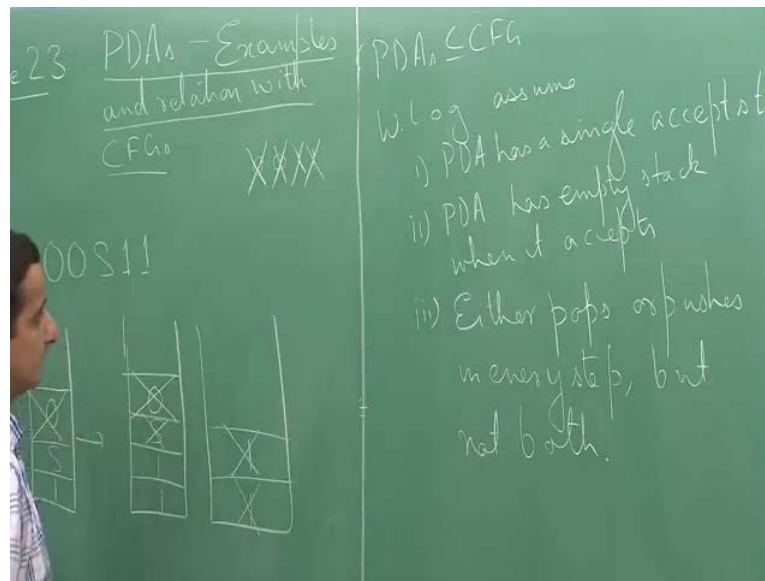 e 23 PDAs - Examples
and relation with
CFGs
XXXX
00S11
0
S
1
→
0
S
1
1
1
1
PDAs ⊆ CFG
W.Log assume
i) PDA has a single accept st
ii) PDA has empty stack
when it accepts
iii) Either pops or pushes
in every step, but
not both.